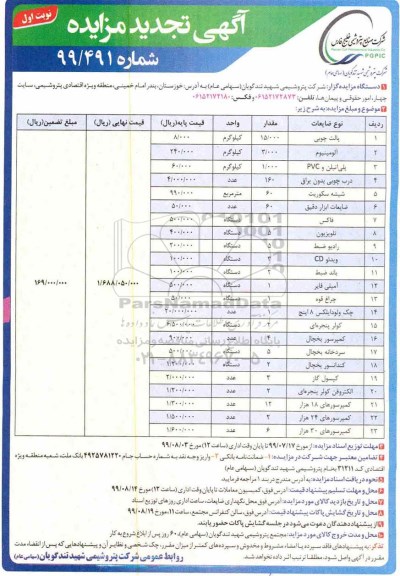 آگهی تجدید مزایده
شماره ۹۹/۴۹۱
نوبت اول
شرکت صنایع پتروشیمی خلیج فارس
PGPIC
شرکت پتروشیمی شهید تندگویان (سهامی عام)
دستگاه مزایده‌گزار: شرکت پتروشیمی شهید تندگویان (سهامی عام) به آدرس: خوزستان، بندر امام خمینی، منطقه ویژه اقتصادی پتروشیمی، سایت
چهار، امور حقوقی و پیمان‌ها، تلفن: ۰۶۱۵۲۱۷۲۸۷۳ فکس: ۰۶۱۵۲۱۷۲۱۸۰
موضوع و مبلغ مزایده به شرح زیر:
ردیف نوع ضایعات مقدار واحد قیمت پایه(ریال) قیمت نهایی (ریال) مبلغ تضمین(ریال)
۱ پالت چوبی ۱۵/۰۰۰ کیلوگرم ۸/۰۰۰
۲ آلومینیوم ۳/۰۰۰ کیلوگرم ۲۴۰/۰۰۰
۳ پلی‌اتیلن و PVC ۱/۰۰۰ کیلوگرم ۶۰/۰۰۰
۴ درب چوبی بدون یراق ۱۶۰ عدد ۴/۰۰۰/۰۰۰
۵ شیشه سکوریت ۶۰ مترمربع ۹۹۰/۰۰۰
۶ ضایعات ابزار دقیق ۶۰ عدد ۵۰/۰۰۰
۷ فاکس ۱ دستگاه ۵۰۰/۰۰۰
۸ تلویزیون ۵ دستگاه ۴۰۰/۰۰۰
۹ رادیو ضبط ۵ دستگاه ۳۰۰/۰۰۰
۱۰ ویدئو CD ۳ دستگاه ۱۰۰/۰۰۰
۱۱ باند ضبط ۲ دستگاه ۱۰۰/۰۰۰
۱۲ آمپلی فایر ۱ دستگاه ۵۰۰/۰۰۰
۱/۶۸۸/۰۵۰/۰۰۰ ۱۶۹/۰۰۰/۰۰۰
۱۳ چراغ قوه عدد ۵۰/۰۰۰
۱۴ چک ولو دابلکس ۸ اینچ ۱ عدد ۲۰/۰۰۰/۰۰۰
۱۵ کولر پنجره‌ای دستگاه ۶/۵۰۰/۰۰۰
۱۶ کمپرسور یخچال عدد
۱۷ سردخانه یخچال ۵ دستگاه ۵۰۰/۰۰۰
۱۸ کندانسور یخچال ۲ دستگاه
۱۹ کپسول گاز ۳ عدد ۲/۰۰۰/۰۰۰
۲۰ الکتروفن کولر پنجره‌ای ۲ عدد ۱/۳۰۰/۰۰۰
۲۱ کمپرسورهای ۱۸ هزار ۱۲ عدد ۱/۳۰۰/۰۰۰
۲۲ کمپرسورهای ۲۴ هزار ۲ عدد ۱/۵۰۰/۰۰۰
۲۳ کمپرسورهای ۳۰ هزار ۶ عدد ۱/۶۰۰/۰۰۰
ParsNamadData
۰۲۱-۸۸۳۴۹۶۷۰-۵
مهلت توزیع اسناد مزایده: از مورخ ۹۹/۰۷/۱۷ تا پایان وقت اداری (ساعت ۱۳) مورخ ۹۹/۰۸/۰۳
تضامین معتبر جهت شرکت در مزایده: ۱- ضمانت‌نامه بانکی ۲- واریز وجه نقد به شماره حساب جام ۴۹۲۵۷۸۱۲۲۰ بانک ملت شعبه منطقه ویژه
اقتصادی کد ۳۱۳۱۱ بنام پتروشیمی شهید تندگویان (سهامی عام)
نحوه دریافت اسناد مزایده: به آدرس مندرج در بند ۱ مراجعه فرمایید.
محل و مهلت تسلیم پیشنهاد قیمت: آدرس فوق، کمیسیون معاملات تا پایان وقت اداری (ساعت ۱۳) مورخ ۹۹/۰۸/۱۴
محل و تاریخ گشایش پاکات پیشنهاد قیمت: آدرس فوق، سالن کنفرانس مجتمع، ساعت مورخ ۹۹/۰۸/۱۹
از پیشنهاددهندگان دعوت می‌شود در جلسه گشایش پاکات حضور یابند.
محل و مدت خروج کالای مورد مزایده: مجتمع پتروشیمی شهید تندگویان (سهامی عام)، ۶۰ روز پس از ابلاغ شروع به کار
روابط عمومی شرکت پتروشیمی شهید تندگویان (سهامی عام)